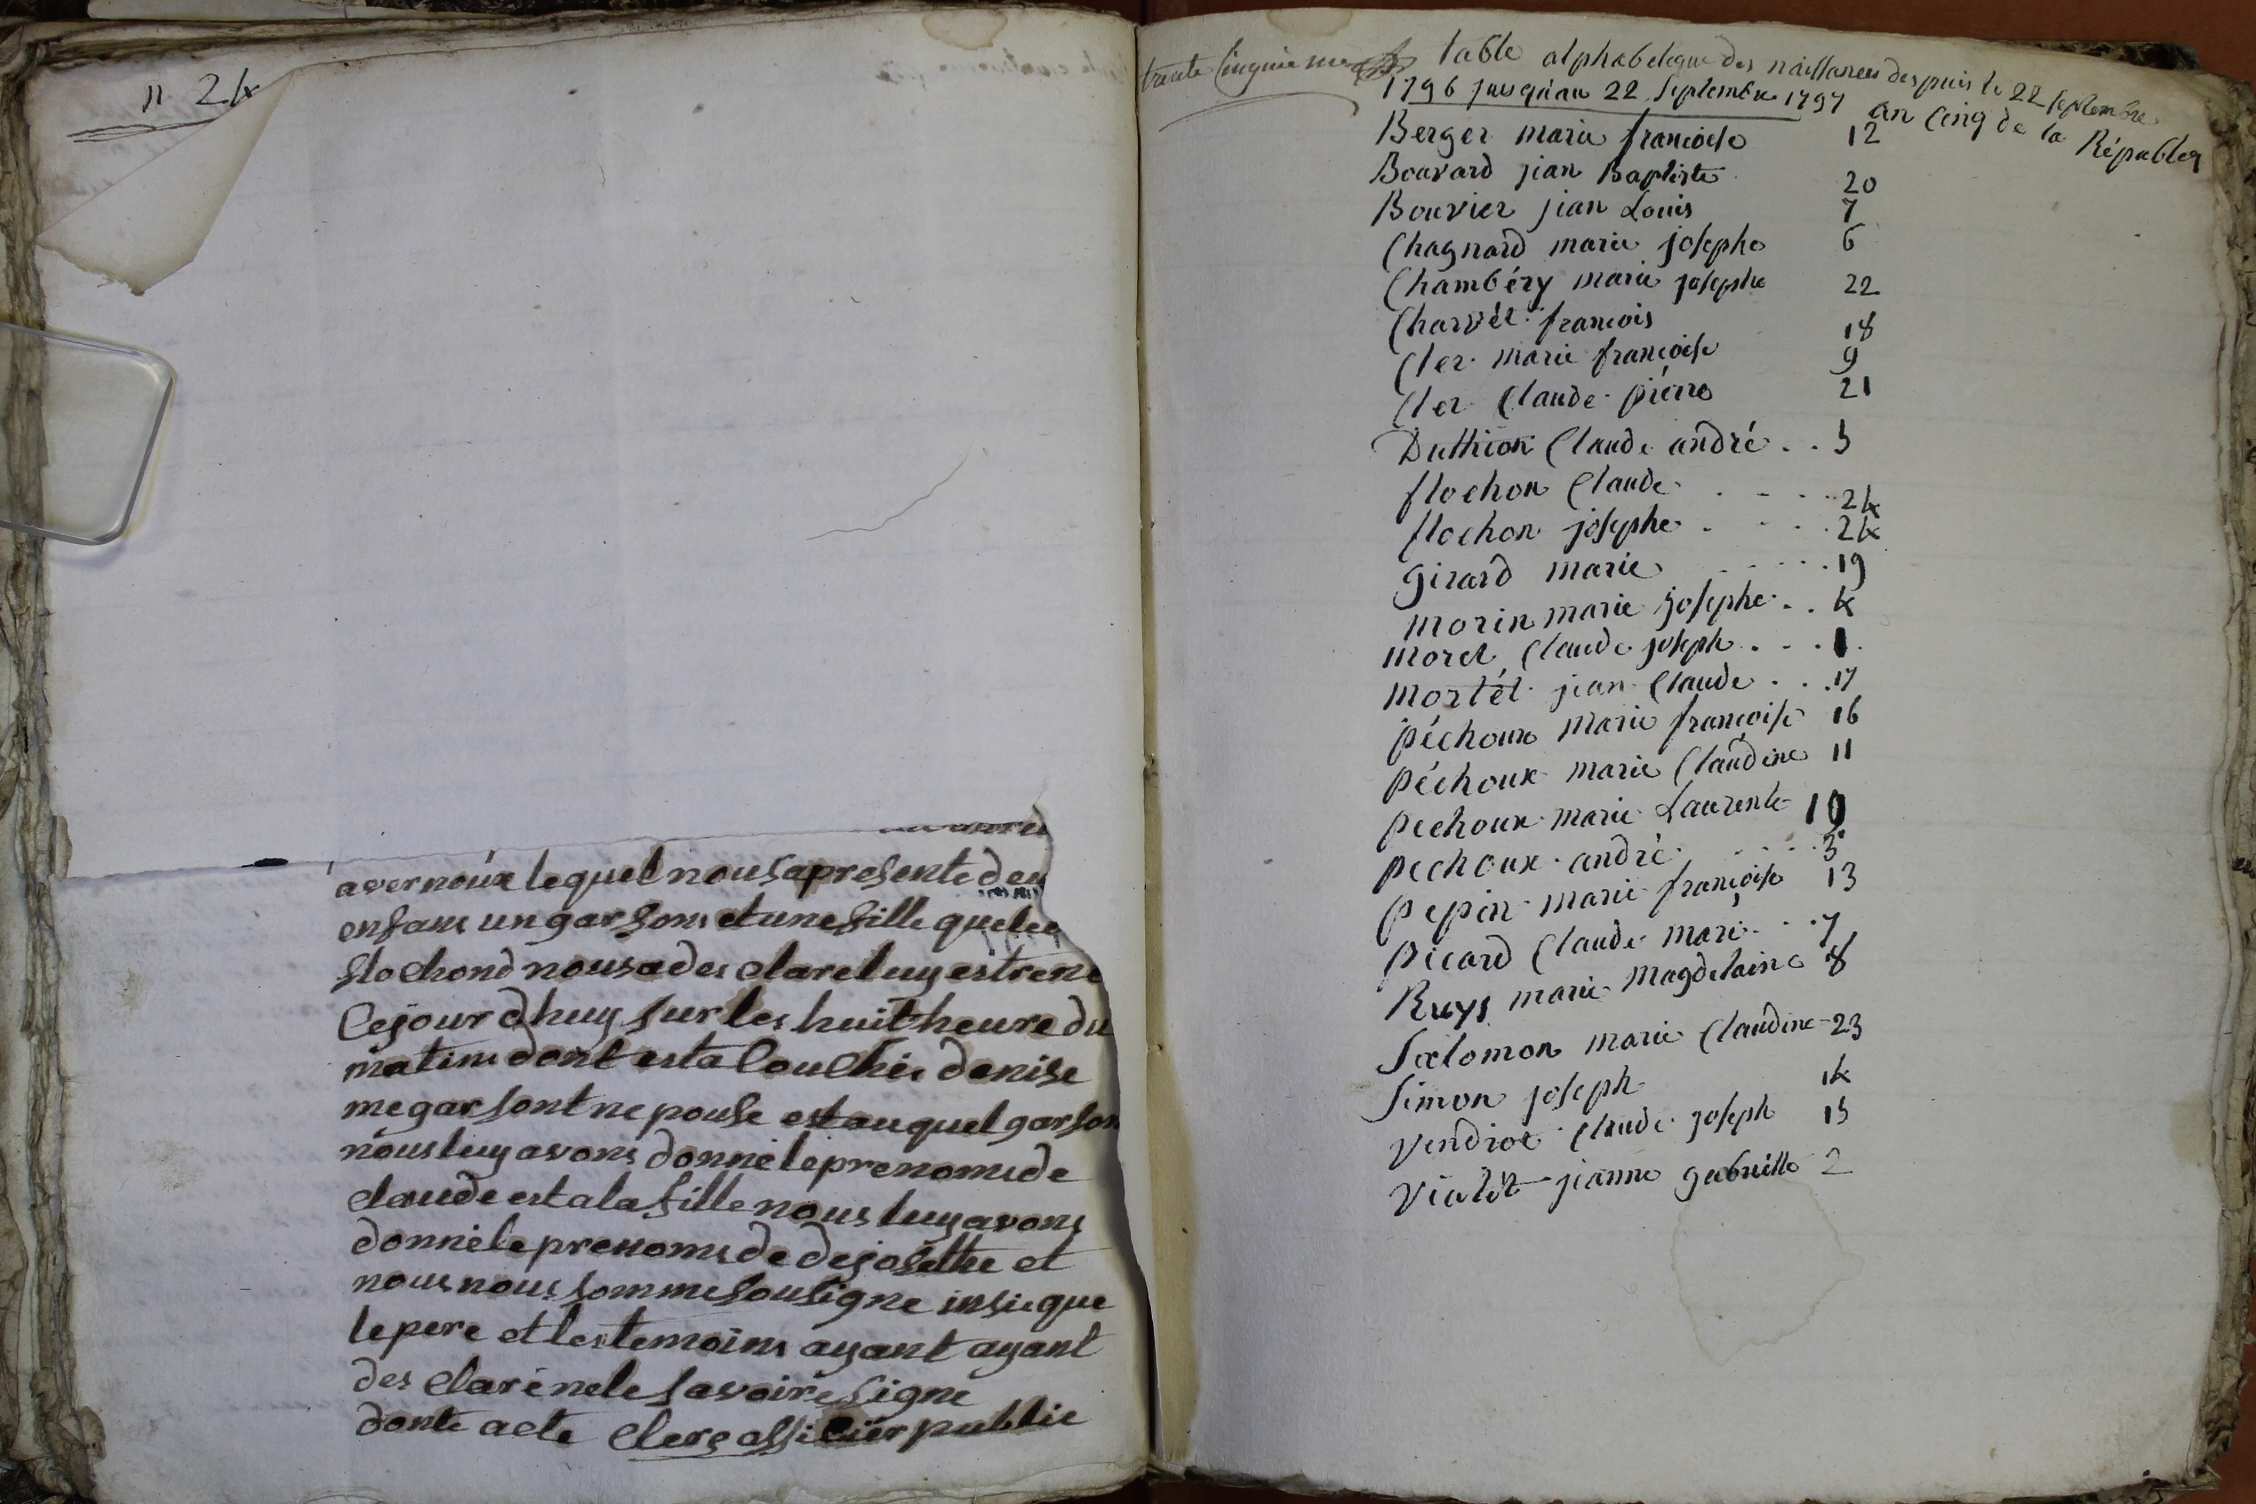 n 24
avernoúx lequel nous apresente deu
enfans un garsons et une fille que le
flochond nous a des clare luy estrene
Ce jour dhuy sur les huit heure du
matins dont est a Couchér denise
me garsont ne pouse est auquel garson
nous luy avons donné le prenoms de
claude est a la fille nous luy avons
donné le prenoms de de josette et
nous nous somme sousigne insie que
le pere et les temoins ayant ayant
des claré ne le savoire signe
donte acte Clerc officiér public
trente Cinquieme
table alphabetique des naissances despuis le 22 septembre
1796 jusqu'au 22 Septembre 1797 an Cinq de la Républeq
Berger marie francoise 12
Bouvard jean Baptiste 20
Bouvier jean Louis 7
Chagnard marie josephe 6
Chambéry marie josephe 22
Charvét francois 18
Cler marie françoise 9
Cler Claude piérre 21
Duthion Claude andré . . 5
flochon Claude . . . . 24
flochon josephe . . . . 24
Girard marie . . . . . 19
morin marie josephe . . 4
morel Claude joseph . . . 1
mortét jean Claude . . . 17
péchoux marie françoise 16
péchoux marie Claudine 11
pechoux marie Laurente 10
pechoux andré . . . . 3
pepin marie françoise 13
picard Claude mari . . . 7
Ruys marie Magdelaine 8
Salomon marie Claudine 23
Simon joseph 14
Vendrot Claude joseph 15
Vialét jeanne gabrielle 2